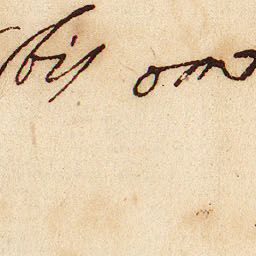 bis om